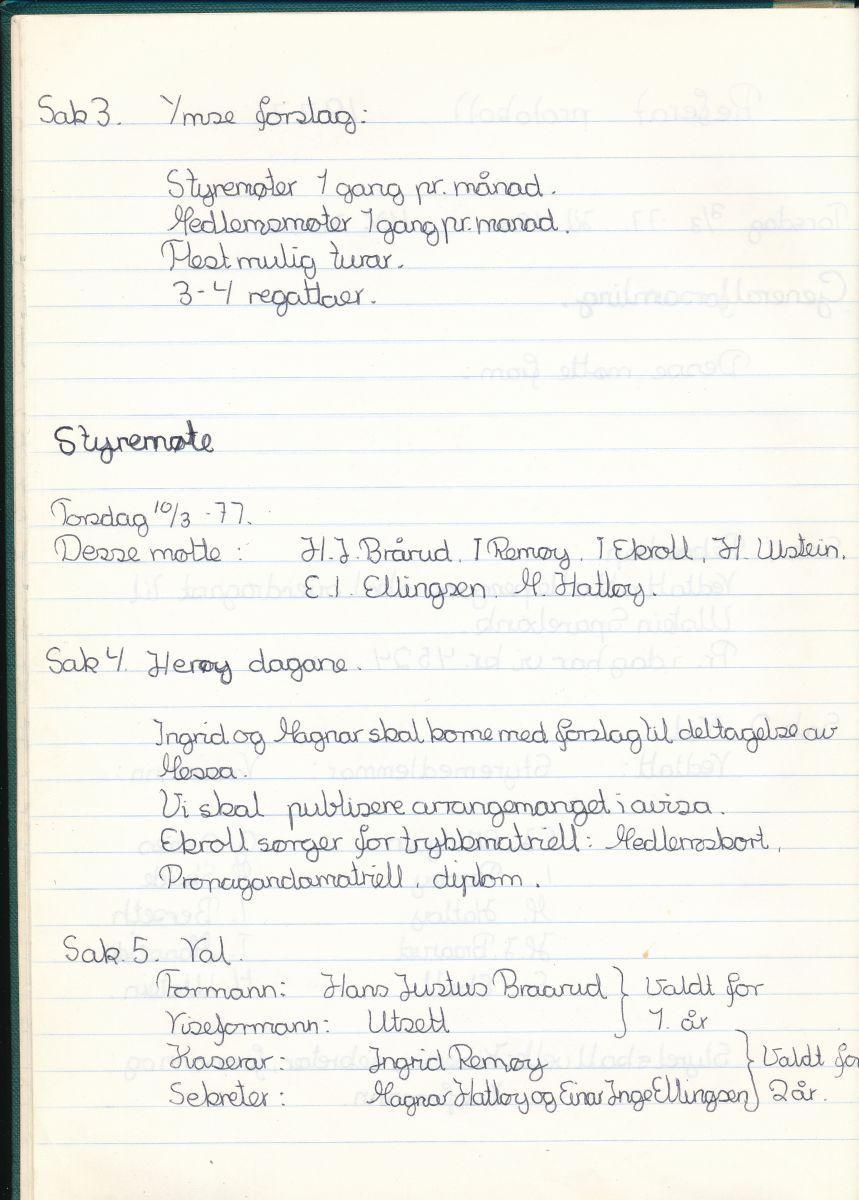 Sak 3. Ymse forslag:
Styremøter 1 gang pr. månad.
Medlemsmøter 1 gang pr. manad.
Flest mulig turar.
3-4 regattaer.
Styremøte
Torsdag 10/3 -77.
Desse møtte: H.J. Brårud, I Remøy, I Ekroll, H. Ulstein,
E.I. Ellingsen. M. Hatløy.
Sak 4. Herøy dagane.
Ingrid og Magnar skal kome med forslag til deltagelse av
Messa.
Vi skal publisere arrangemanget i avisa.
Ekroll sørger for trykkmatriell: Medlemskort,
Propagandamatriell, diplom.
Sak. 5. Val.
Formann: Hans Justus Braarud } Valdt for
Viseformann: Utsett 1. år
Kaserar: Ingrid Remøy } Valdt for
Sekreter: Magnar Hatløy og Einar Inge Ellingsen 2 år.